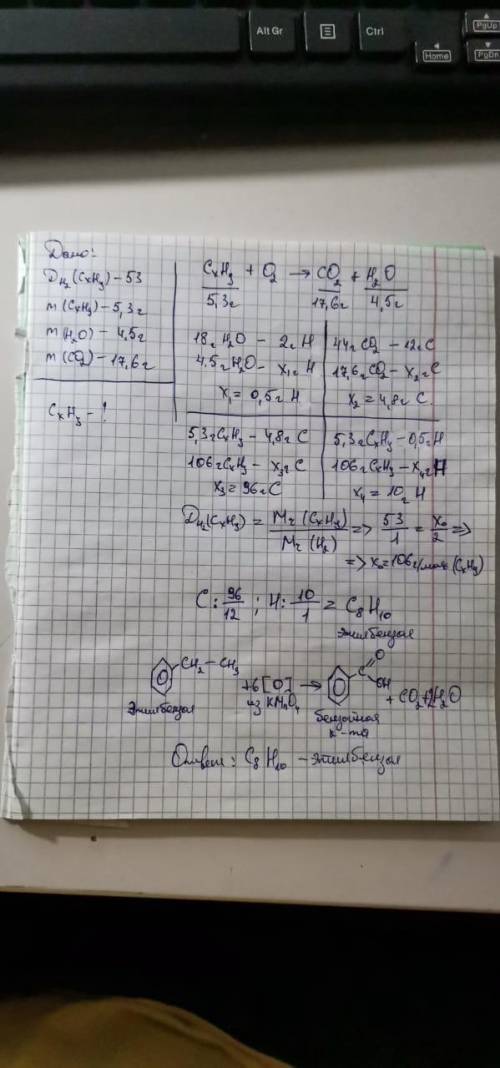 Alt Gr
Ctrl
PgUp
Home
PgDn
Дано:
D H₂ (CxHy) – 53
m (CxHy) – 5,3г
m (H₂O) – 4,5г
m (CO₂) – 17,6г
CxHy – ?
CxHy + O₂ → CO₂ + H₂O
5,3г 17,6г 4,5г
18г H₂O – 2г H
4,5г H₂O – x₁г H
x₁ = 0,5г H
44г CO₂ – 12г C
17,6г CO₂ – x₂г C
x₂ = 4,8г C.
5,3г CxHy – 4,8г C
106г CxHy – x₃г C
x₃ = 96г C
5,3г CxHy – 0,5г H
106г CxHy – x₄г H
x₄ = 10г H
D H₂ (CxHy) = Mr (CxHy) / Mr (H₂) => 53/1 = x₀/2 =>
=> x₀ = 106г/моль (CxHy)
C: 96/12 ; H: 10/1 = C₈H₁₀
этилбензол
CH₂ – CH₃ +6[O] → C O OH + CO₂ + 2H₂O
из KMnO₄
Этилбензол
бензойная
к-та
Ответ: C₈H₁₀ – этилбензол